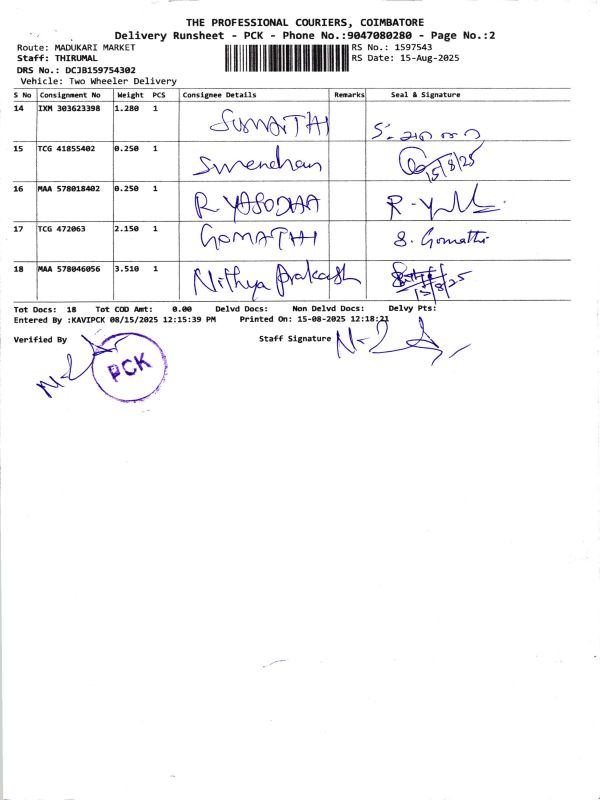 THE PROFESSIONAL COURIERS, COIMBATORE
Delivery Runsheet - PCK - Phone No.:9047080280 - Page No.:2
Route: MADUKARI MARKET RS No.: 1597543
Staff: THIRUMAL RS Date: 15-Aug-2025
DRS No.: DCJB159754302
Vehicle: Two Wheeler Delivery
S No Consignment No Weight PCS Consignee Details Remarks Seal & Signature
14 IXM 303623398 1.280 1 SUMAITHI
15 TCG 41855402 0.250 1 Surendran 15/8/25
16 MAA 578018402 0.250 1 R. YASODHAA
17 TCG 472063 2.150 1 GOMATHI S. Gomathi
18 MAA 578046056 3.510 1 Nithya Prakash 15/8/25
Tot Docs: 18 Tot COD Amt: 0.00 Delvd Docs: Non Delvd Docs: Delvy Pts:
Entered By :KAVIPCK 08/15/2025 12:15:39 PM Printed On: 15-08-2025 12:18:21
Verified By Staff Signature
PCK